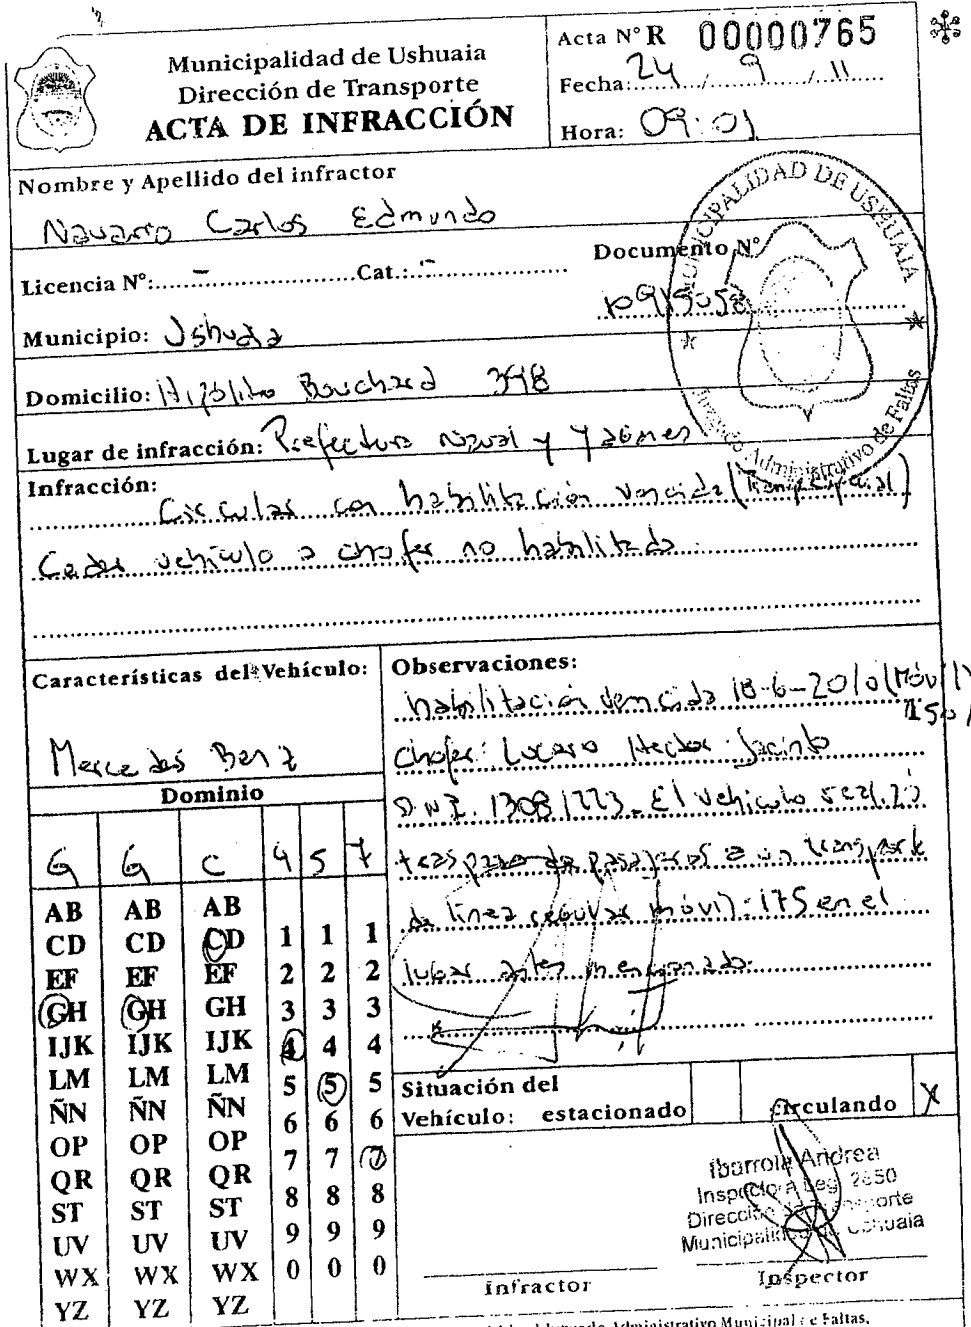 Municipalidad de Ushuaia
Dirección de Transporte
ACTA DE INFRACCIÓN
Acta N° R 00000765
Fecha: 24 / 9 / 11
Hora: 09:01
Nombre y Apellido del infractor
Navarro Carlos Edmundo
Licencia N°: - Cat.: -
Documento N°
10915058
Municipio: Ushuaia
Domicilio: Hipólito Bouchard 348
Lugar de infracción: Prefectura naval y Yaganes
MUNICIPALIDAD DE USHUAIA
Juzgado Administrativo de Faltas
Infracción:
Circular con habilitación vencida (Transp. Especial)
Ceder vehículo a chofer no habilitado.
Características del Vehículo:
Mercedes Benz
Dominio
G G C 4 5 7
AB AB AB
CD CD CD 1 1 1
EF EF EF 2 2 2
GH GH GH 3 3 3
IJK IJK IJK 4 4 4
LM LM LM 5 5 5
ÑN ÑN ÑN 6 6 6
OP OP OP 7 7 7
QR QR QR 8 8 8
ST ST ST 9 9 9
UV UV UV 0 0 0
WX WX WX
YZ YZ YZ
Observaciones:
habilitación vencida 18-6-2010 (Móvil
150)
Chofer: Lucero Hector Jacinto
D.N.I. 13081773. El vehiculo realizó
traspaso de pasajeros a un transporte
de línea regular móvil: 175 en el
lugar antes mencionado.
Situación del
Vehículo: estacionado circulando X
Ibarrola Andrea
Inspectora Leg. 2650
Dirección de Transporte
Municipalidad de Ushuaia
Infractor Inspector
Administrativo Municipal de Faltas.